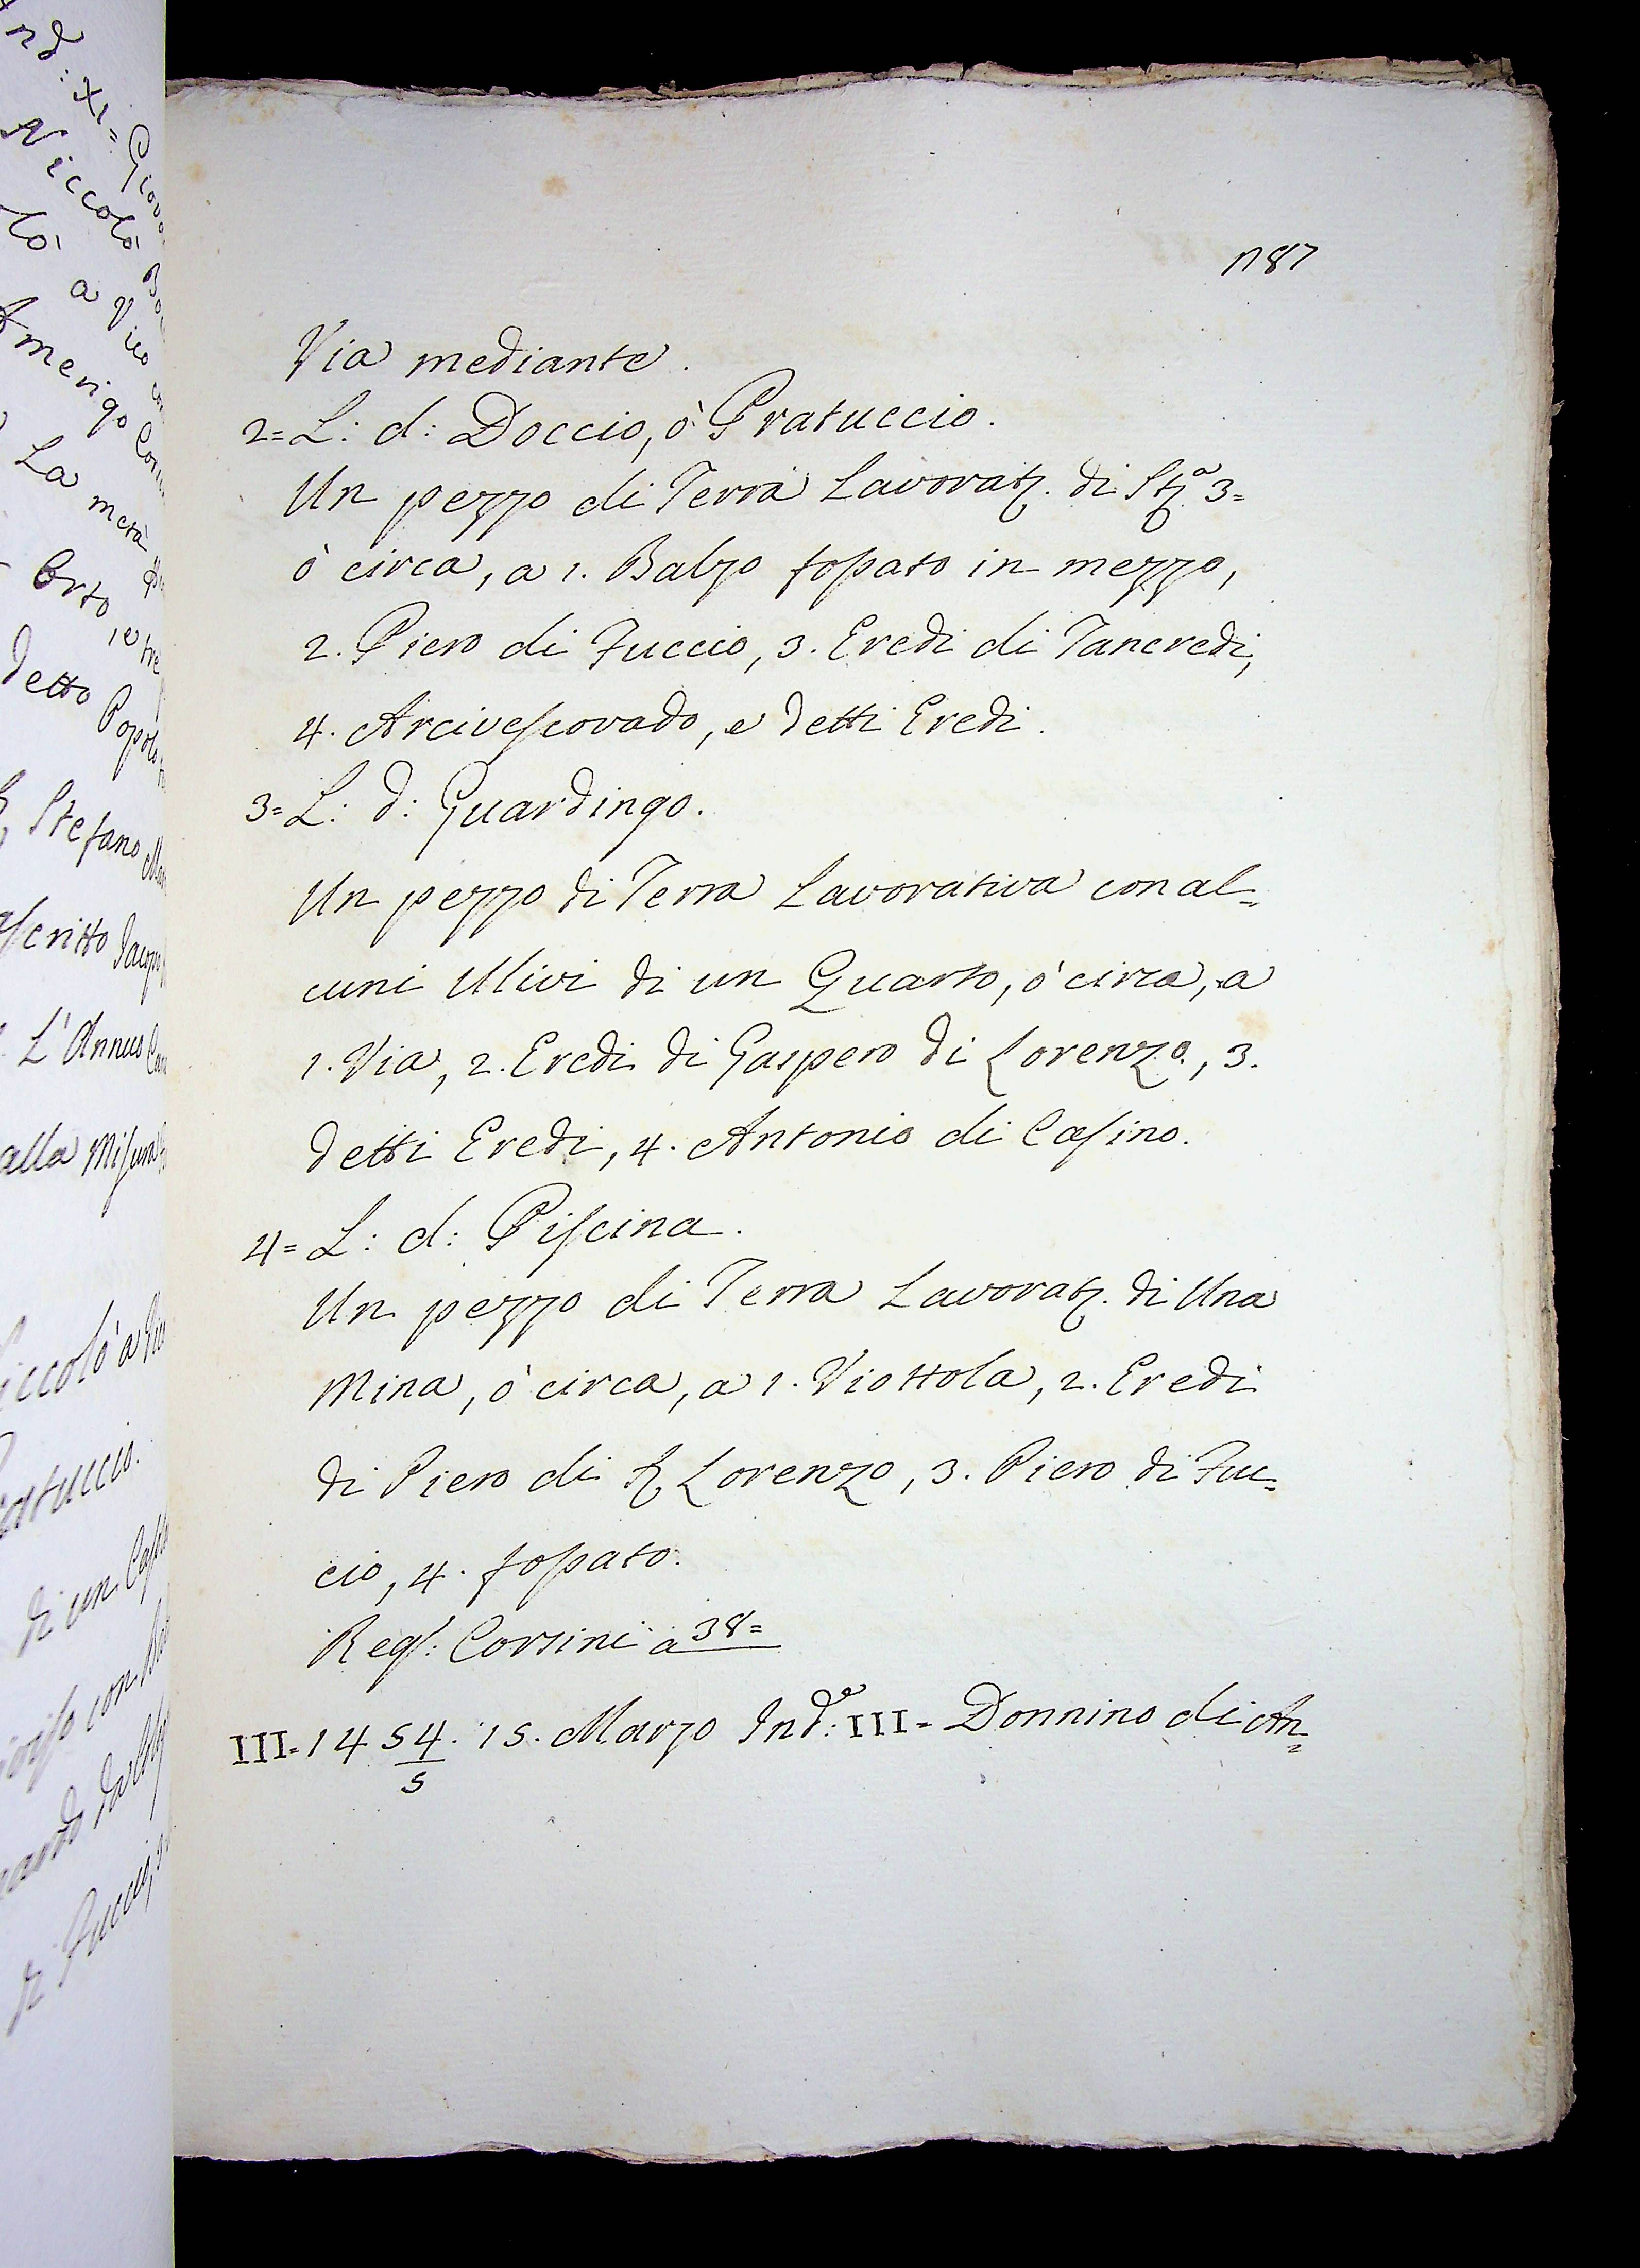 1187
Via mediante.
2= L: d: Doccio, ò Pratuccio.
Un pezzo di Terra Lavorat. di St.ª 3=
ò circa, a 1. Balzo fossato in mezzo,
2. Piero di Fuccio, 3. Eredi di Tancredi,
4. Arcivescovado, e detti Eredi.
3= L: d: Guardingo.
Un pezzo di Terra Lavorativa con al=
cuni Ulivi di un Quarto, ò circa, a
1. Via, 2. Eredi di Gaspero di Lorenzo, 3.
detti Eredi, 4. Antonio di Casino.
4= L: d: Piscina.
Un pezzo di Terra Lavorat. di Una
Mina, ò circa, a 1. Viottola, 2. Eredi
di Piero di Lorenzo, 3. Piero di Fuc=
cio, 4. fossato.
Reg.: Corsini a 38=
III= 1454/5. 15. Marzo Ind.e: III= Donnino di An=
Niccolò
a Vico
Amerigo
La metà
Orto, e tre
detto Popolo
Stefano
L'Annuo
alla Misura
di un